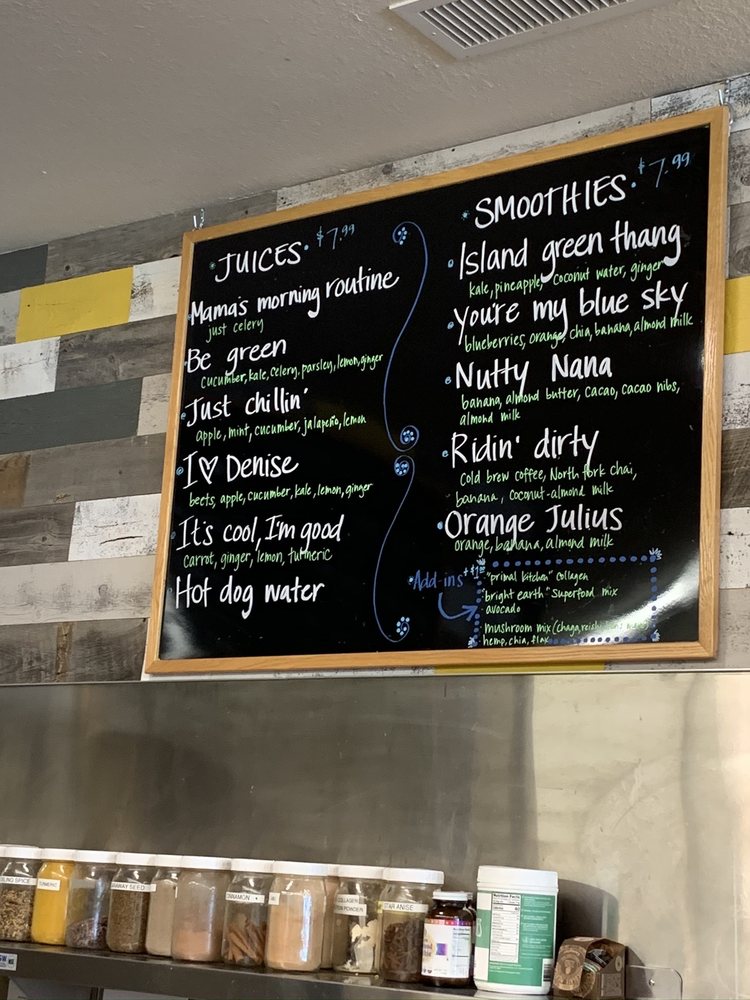 JUICES. $7.99
Mama's morning routine
just celery
Be green
cucumber, kale, celery, parsley, lemon, ginger
Just chillin'
apple, mint, cucumber, jalapeño, lemon
I ♡ Denise
beets, apple, cucumber, kale, lemon, ginger
It's cool, I'm good
carrot, ginger, lemon, turmeric
Hot dog water
SMOOTHIES. $7.99
Island green thang
kale, pineapple, coconut water, ginger
you're my blue sky
blueberries, orange, chia, banana, almond milk
Nutty Nana
banana, almond butter, cacao, cacao nibs,
almond milk
Ridin' dirty
cold brew coffee, North fork chai,
banana, coconut-almond milk
Orange Julius
orange, banana, almond milk
Add-ins +$1.00
"primal kitchen" collagen
"bright earth" superfood mix
avocado
mushroom mix (chaga, reishi
hemp, chia, flax
SPICE
TURMERIC
CARAWAY SEED
CINNAMON
COLLAGEN
POWDER
STAR ANISE
Nutrition Facts